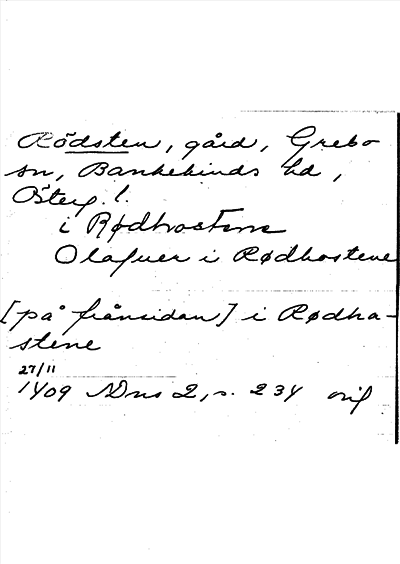 Rödsten, gård, Grebo
sn, Bankekinds hd,
Österg. l.
i Rødhostene
Olafuer i Rødhostene
[på frånsidan] i Rødho-
stene
27/11
1409 NDns 2, s. 234 orig